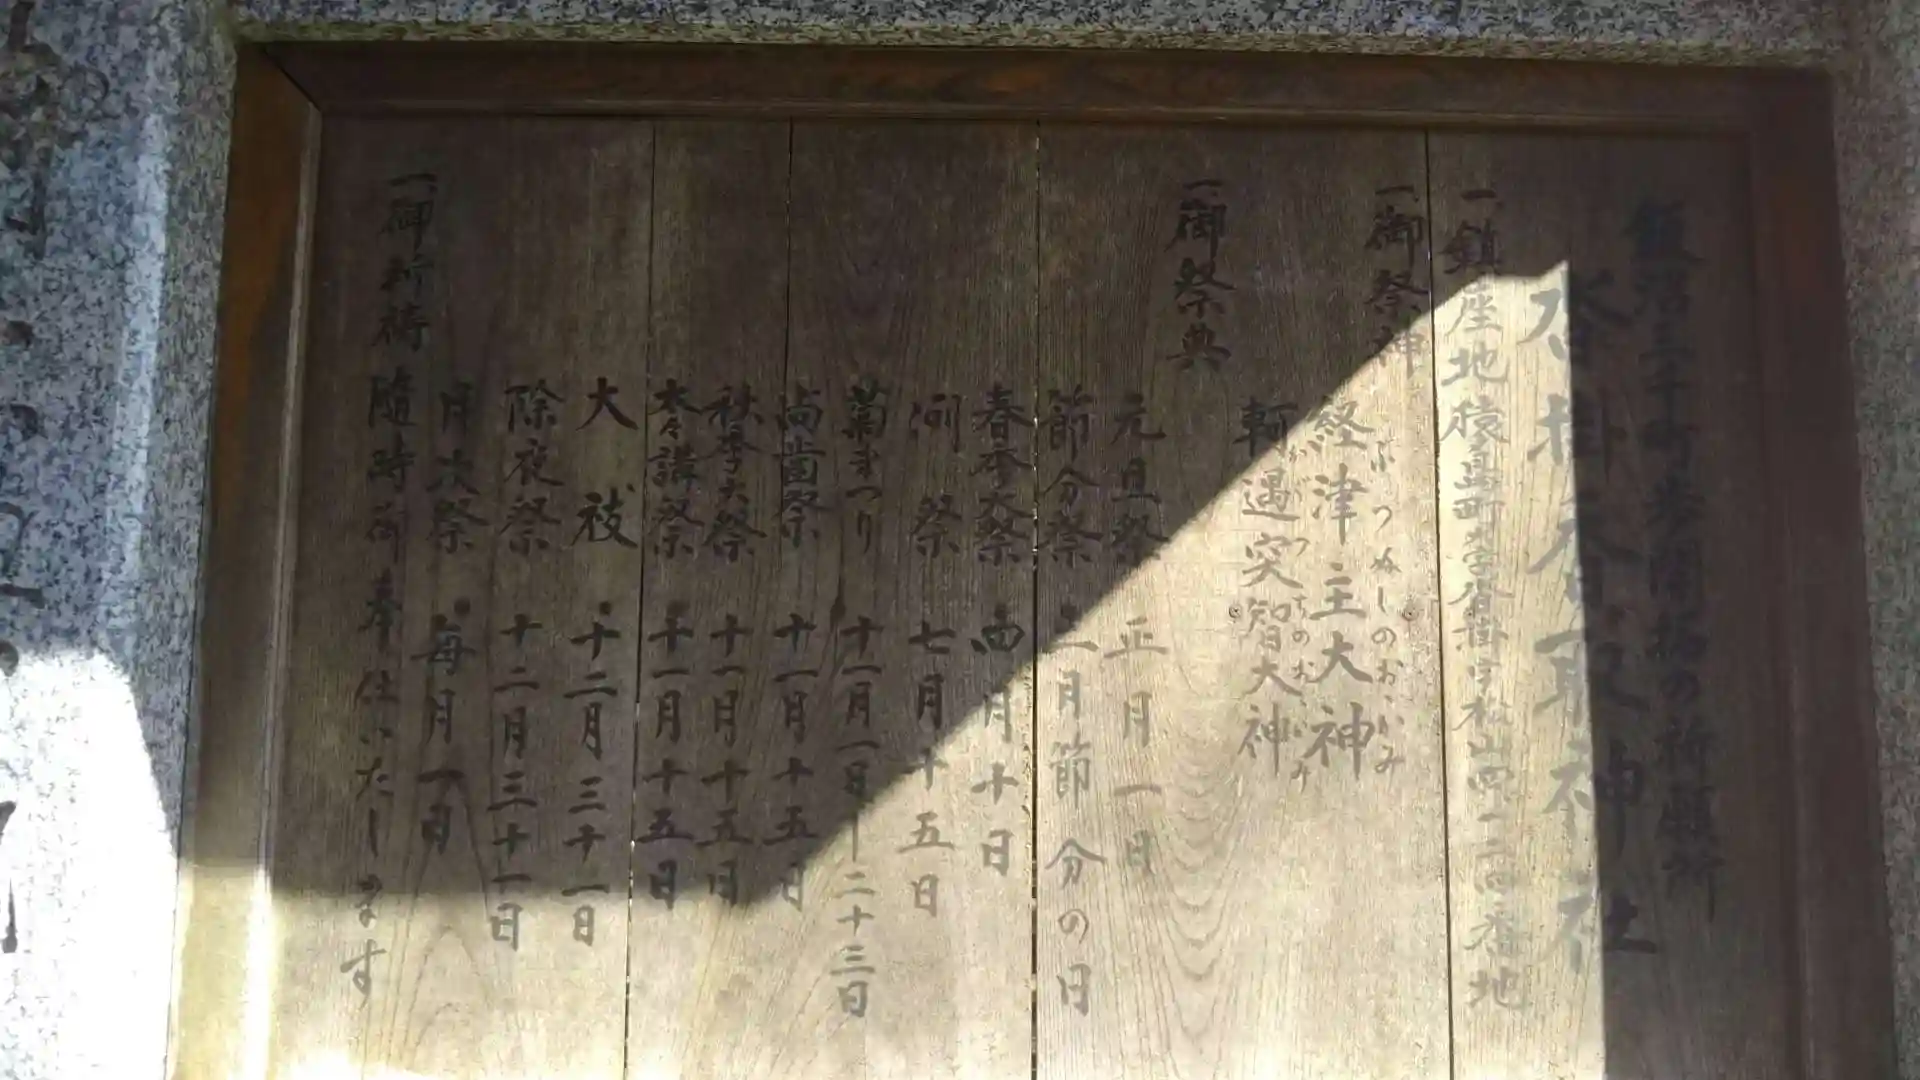 飯沼三千町歩開拓の祈願所
沓掛香取神社
一、鎮座地 猿島町大字沓掛字松山四一二四番地
一、御祭神
ふつぬしのおゝかみ
経津主大神
かぐつちのおゝかみ
軻遇突智大神
一、御祭典
元旦祭 正月一日
節分祭 二月節分の日
春季大祭 四月十日
例祭 七月十五日
菊まつり 十一月一日〜二十三日
尚歯祭 十一月十五日
秋季大祭 十一月十五日
太々講祭 十一月十五日
大祓 十二月三十一日
除夜祭 十二月三十一日
月次祭 毎月一日
一、御祈祷 随時御奉仕いたします